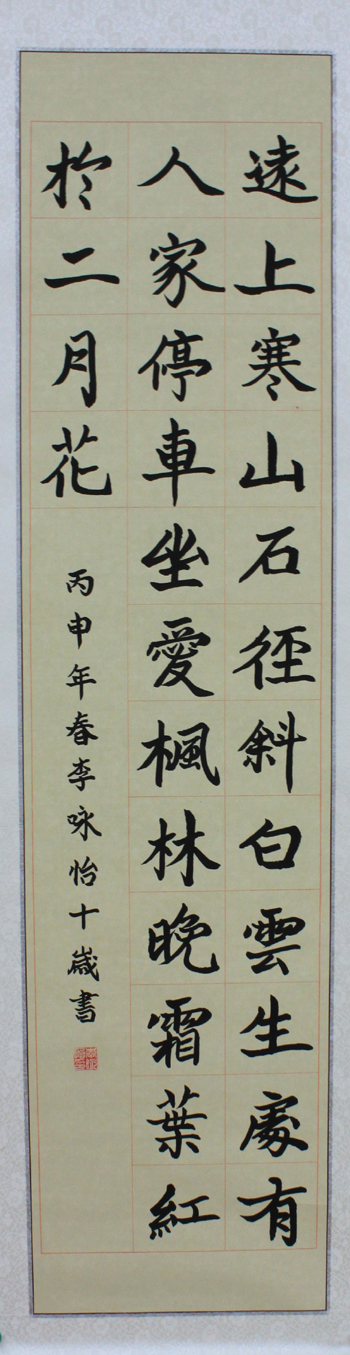 遠上寒山石徑斜白雲生處有
人家停車坐愛楓林晚霜葉紅
於二月花
丙申年春李咏怡十歲書